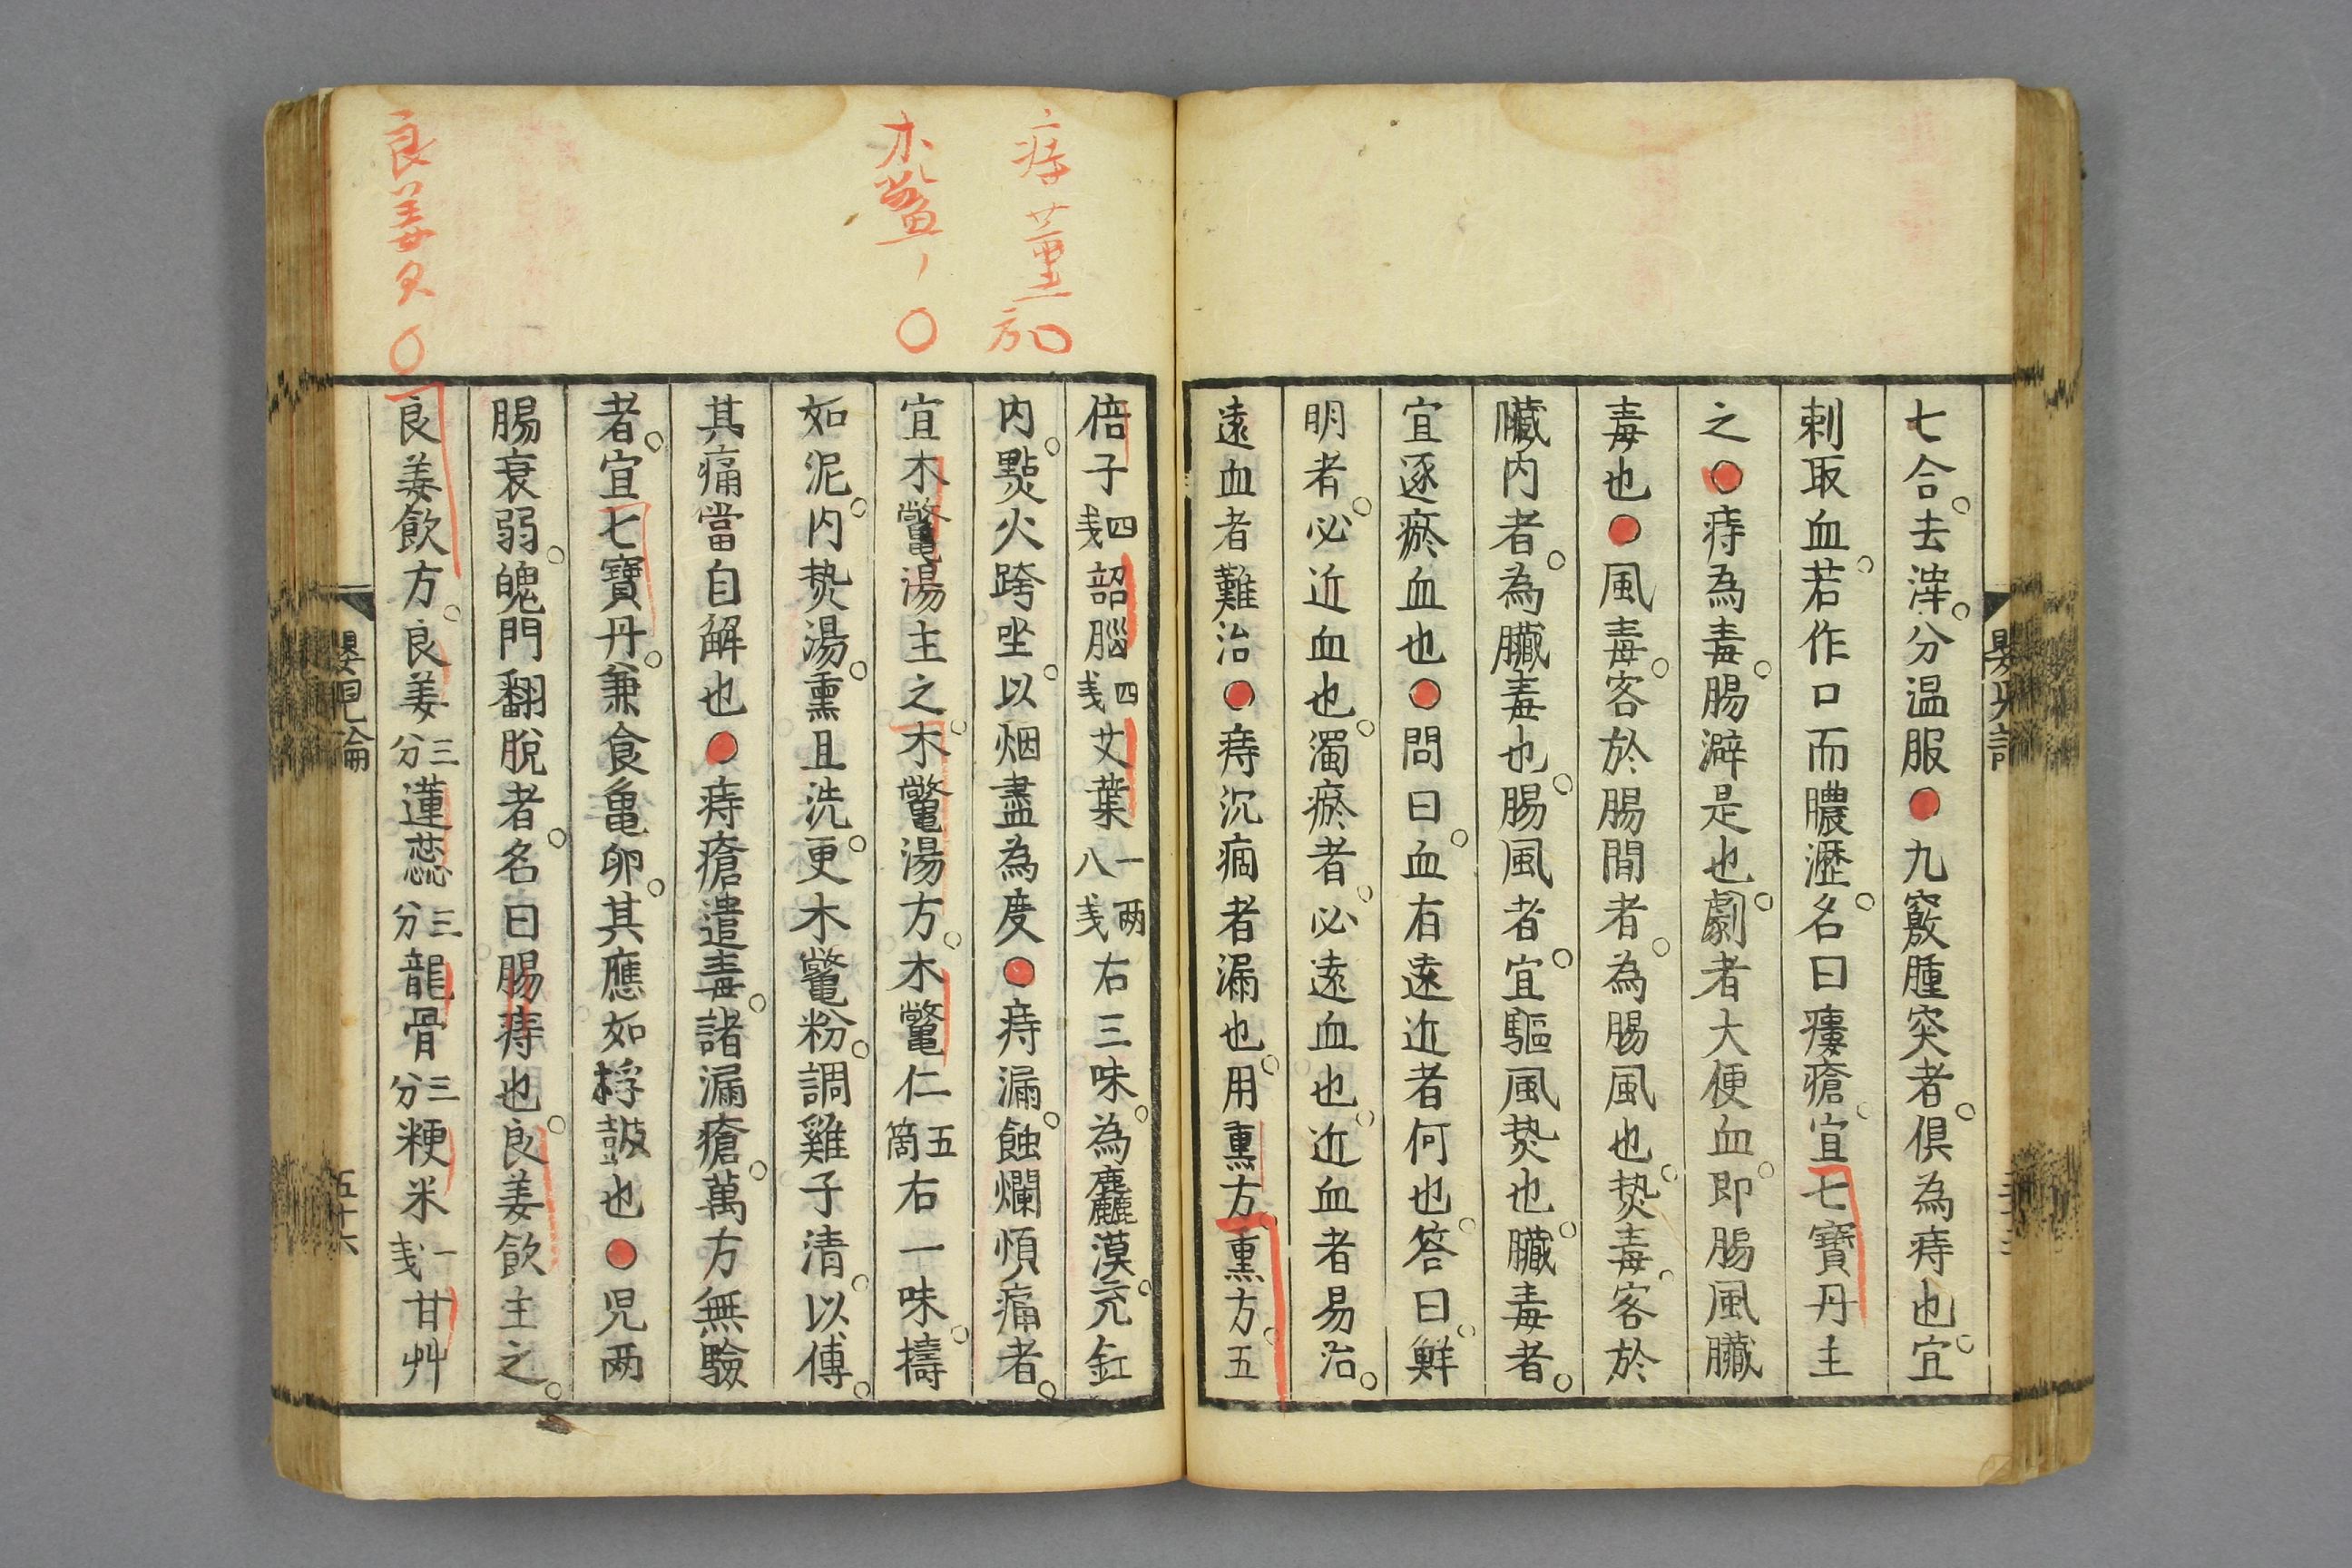 七合。去滓。分温服●九竅腫突者。俱為痔也。宜
刺取血。若作口而膿瀝。名曰瘻瘡。宜七寶丹主
之●痔為毒。腸澼是也。劇者大便血。即腸風臓
毒也●風毒。客於腸間者。為腸風也。𤍠毒。客於
臓内者。為臓毒也。腸風者。宜驅風𤍠也。臓毒者。
宜逐瘀血也●問曰。血有遠近者何也。答曰。鮮
明者。必近血也。濁瘀者。必遠血也。近血者易治。
遠血者難治●痔沉痼者漏也。用熏方。熏方。五
痔薫方〇
木鱉〃〇
良姜夕〇
倍子四戔韶腦四戔艾葉一两八戔右三味。為麤漠。充缸
内。㸃火跨坐。以烟盡為度●痔漏。蝕爛煩痛者。
宜木鼈湯主之。木鼈湯方。木鼈仁五箇右一味。擣
如泥。内𤍠湯。熏且洗。更木鼈粉。調雞子清。以傅。
其痛當自解也●痔瘡遣毒。諸漏瘡。萬方無驗
者。宜七寶丹。兼食亀卵。其應如桴鼓也●児两
腸衰弱。魄門翻脱者。名曰腸痔也。良姜飲主之。
良姜飲方。良姜三分蓮蕊三分龍骨三分粳米一戔甘艸
嬰児論
五十六